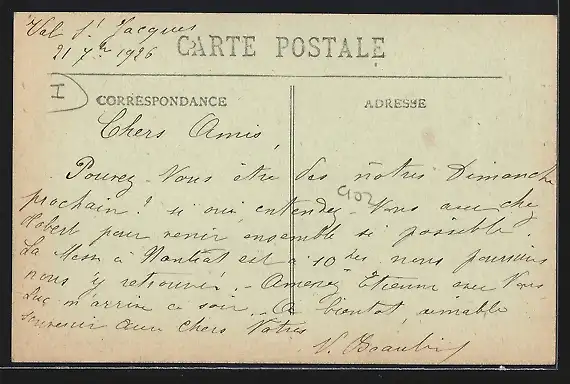 Val St Jacques
21 7re 1926
CARTE POSTALE
I
CORRESPONDANCE
ADRESSE
Chers Amis,
Pouvez Vous être des nôtres Dimanche
prochain? si oui entendez-Vous avec chez
Hobert pour venir ensemble si possible
La Messe à est à 10 hes nous pourrions
nous y retrouver. - Amenez Etienne avec Vous
Luc m'arrive ce soir. - A bientôt, aimable
souvenir aux Chers Votres
V.